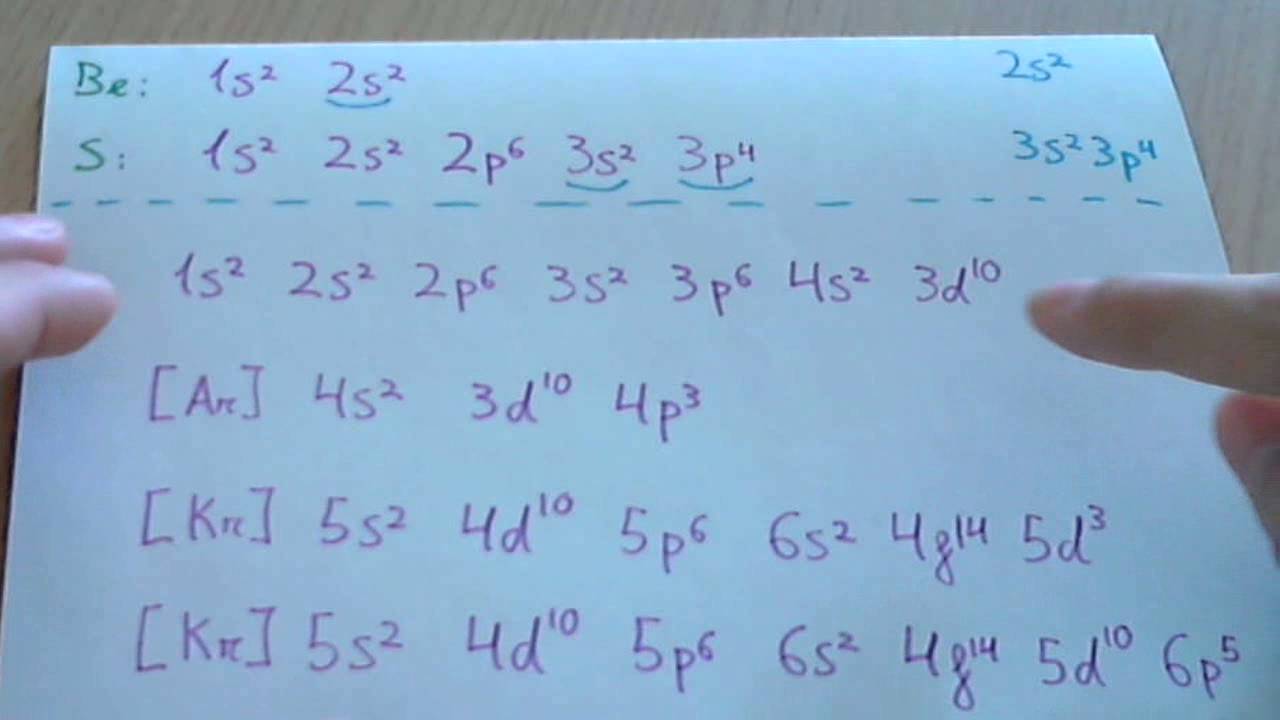 Be: 1s² 2s² 2s²
S: 1s² 2s² 2p⁶ 3s² 3p⁴ 3s² 3p⁴
1s² 2s² 2p⁶ 3s² 3p⁶ 4s² 3d¹⁰
[Ar] 4s² 3d¹⁰ 4p³
[Kr] 5s² 4d¹⁰ 5p⁶ 6s² 4f¹⁴ 5d³
[Kr] 5s² 4d¹⁰ 5p⁶ 6s² 4f¹⁴ 5d¹⁰ 6p⁵